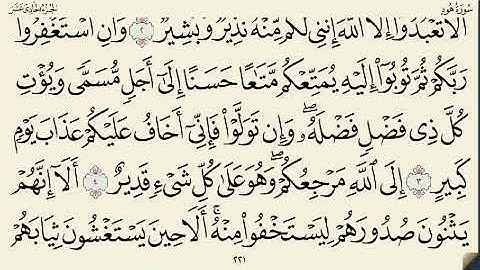 سورة هود
الجزء الحادي عشر
أَلَّا تَعْبُدُوٓا۟ إِلَّا ٱللَّهَ إِنَّنِى لَكُم مِّنْهُ نَذِيرٌ وَبَشِيرٌ ٢ وَأَنِ ٱسْتَغْفِرُوا۟
رَبَّكُمْ ثُمَّ تُوبُوٓا۟ إِلَيْهِ يُمَتِّعْكُم مَّتَٰعًا حَسَنًا إِلَىٰٓ أَجَلٍ مُّسَمًّى وَيُؤْتِ
كُلَّ ذِى فَضْلٍ فَضْلَهُۥ ۖ وَإِن تَوَلَّوْا۟ فَإِنِّىٓ أَخَافُ عَلَيْكُمْ عَذَابَ يَوْمٍ
كَبِيرٍ ٣ إِلَى ٱللَّهِ مَرْجِعُكُمْ ۖ وَهُوَ عَلَىٰ كُلِّ شَىْءٍ قَدِيرٌ ٤ أَلَآ إِنَّهُمْ
يَثْنُونَ صُدُورَهُمْ لِيَسْتَخْفُوا۟ مِنْهُ ۚ أَلَا حِينَ يَسْتَغْشُونَ ثِيَابَهُمْ
٢٢١